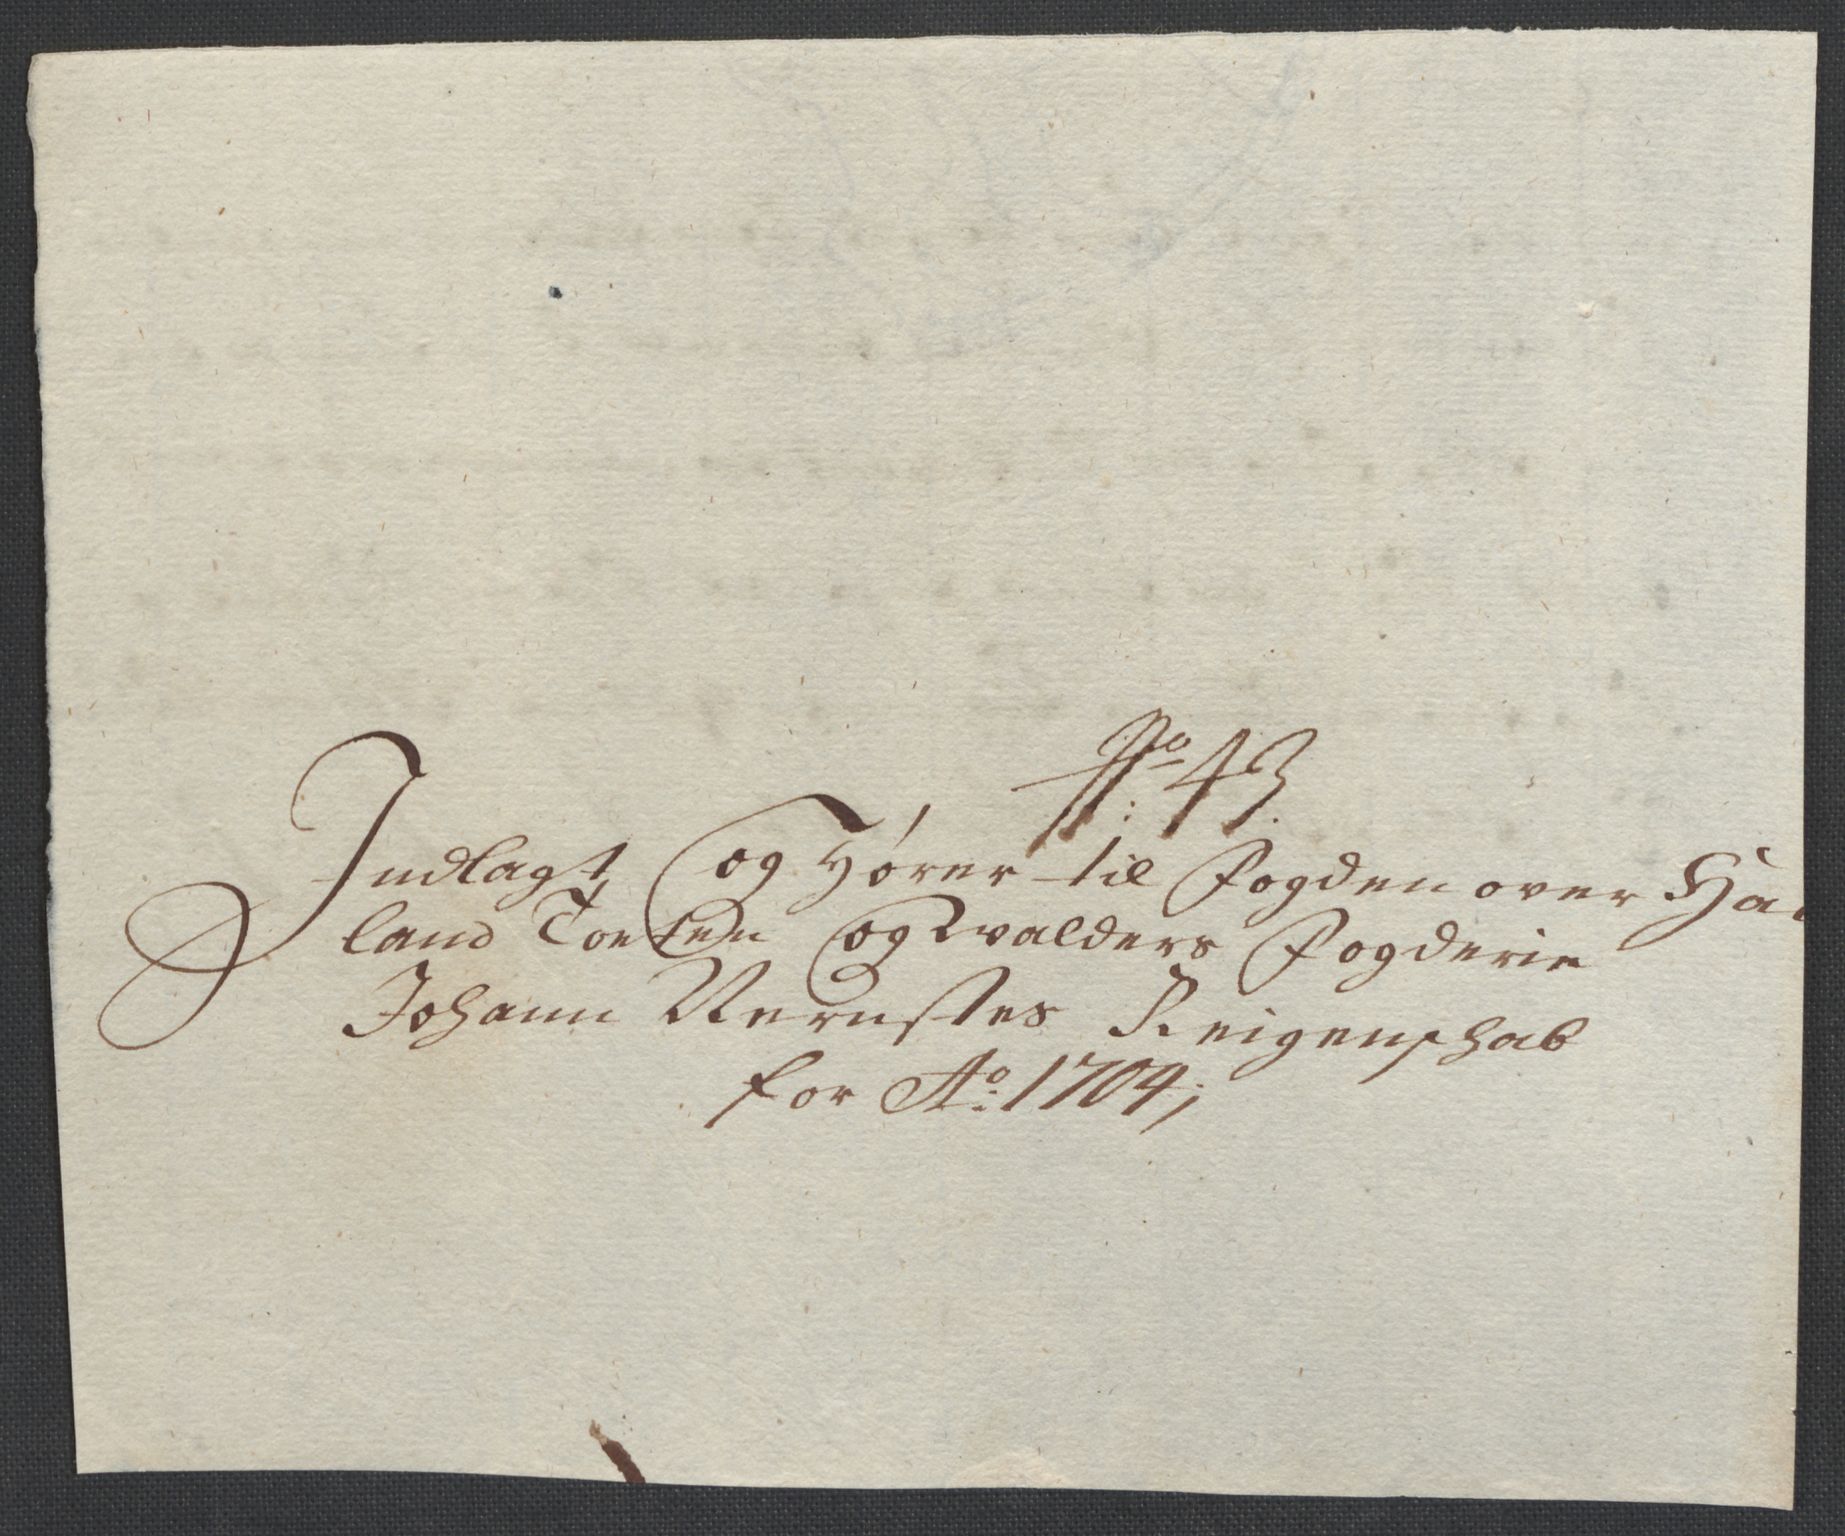 No: 43.
Indlagt, og hører til Fogden over Had
land Toten og Walders Fogderie
Johann Vernstes Reigenshab
for Ao: 1704;